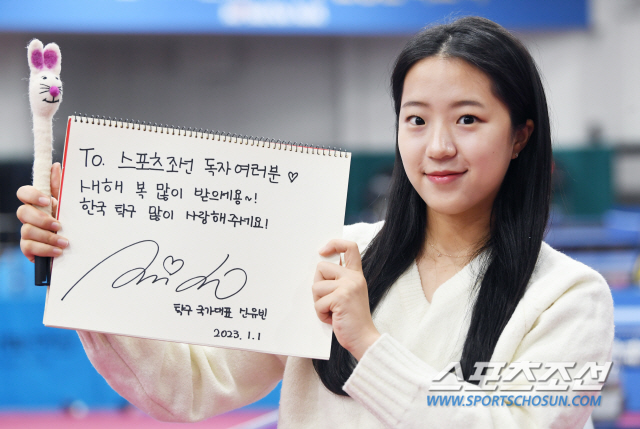 To. 스포츠조선 독자여러분 ♡
새해 복 많이 받으세용~!
한국 탁구 많이 사랑해주세요!
탁구 국가대표 신유빈
2023. 1. 1
스포츠조선
WWW.SPORTSCHOSUN.COM